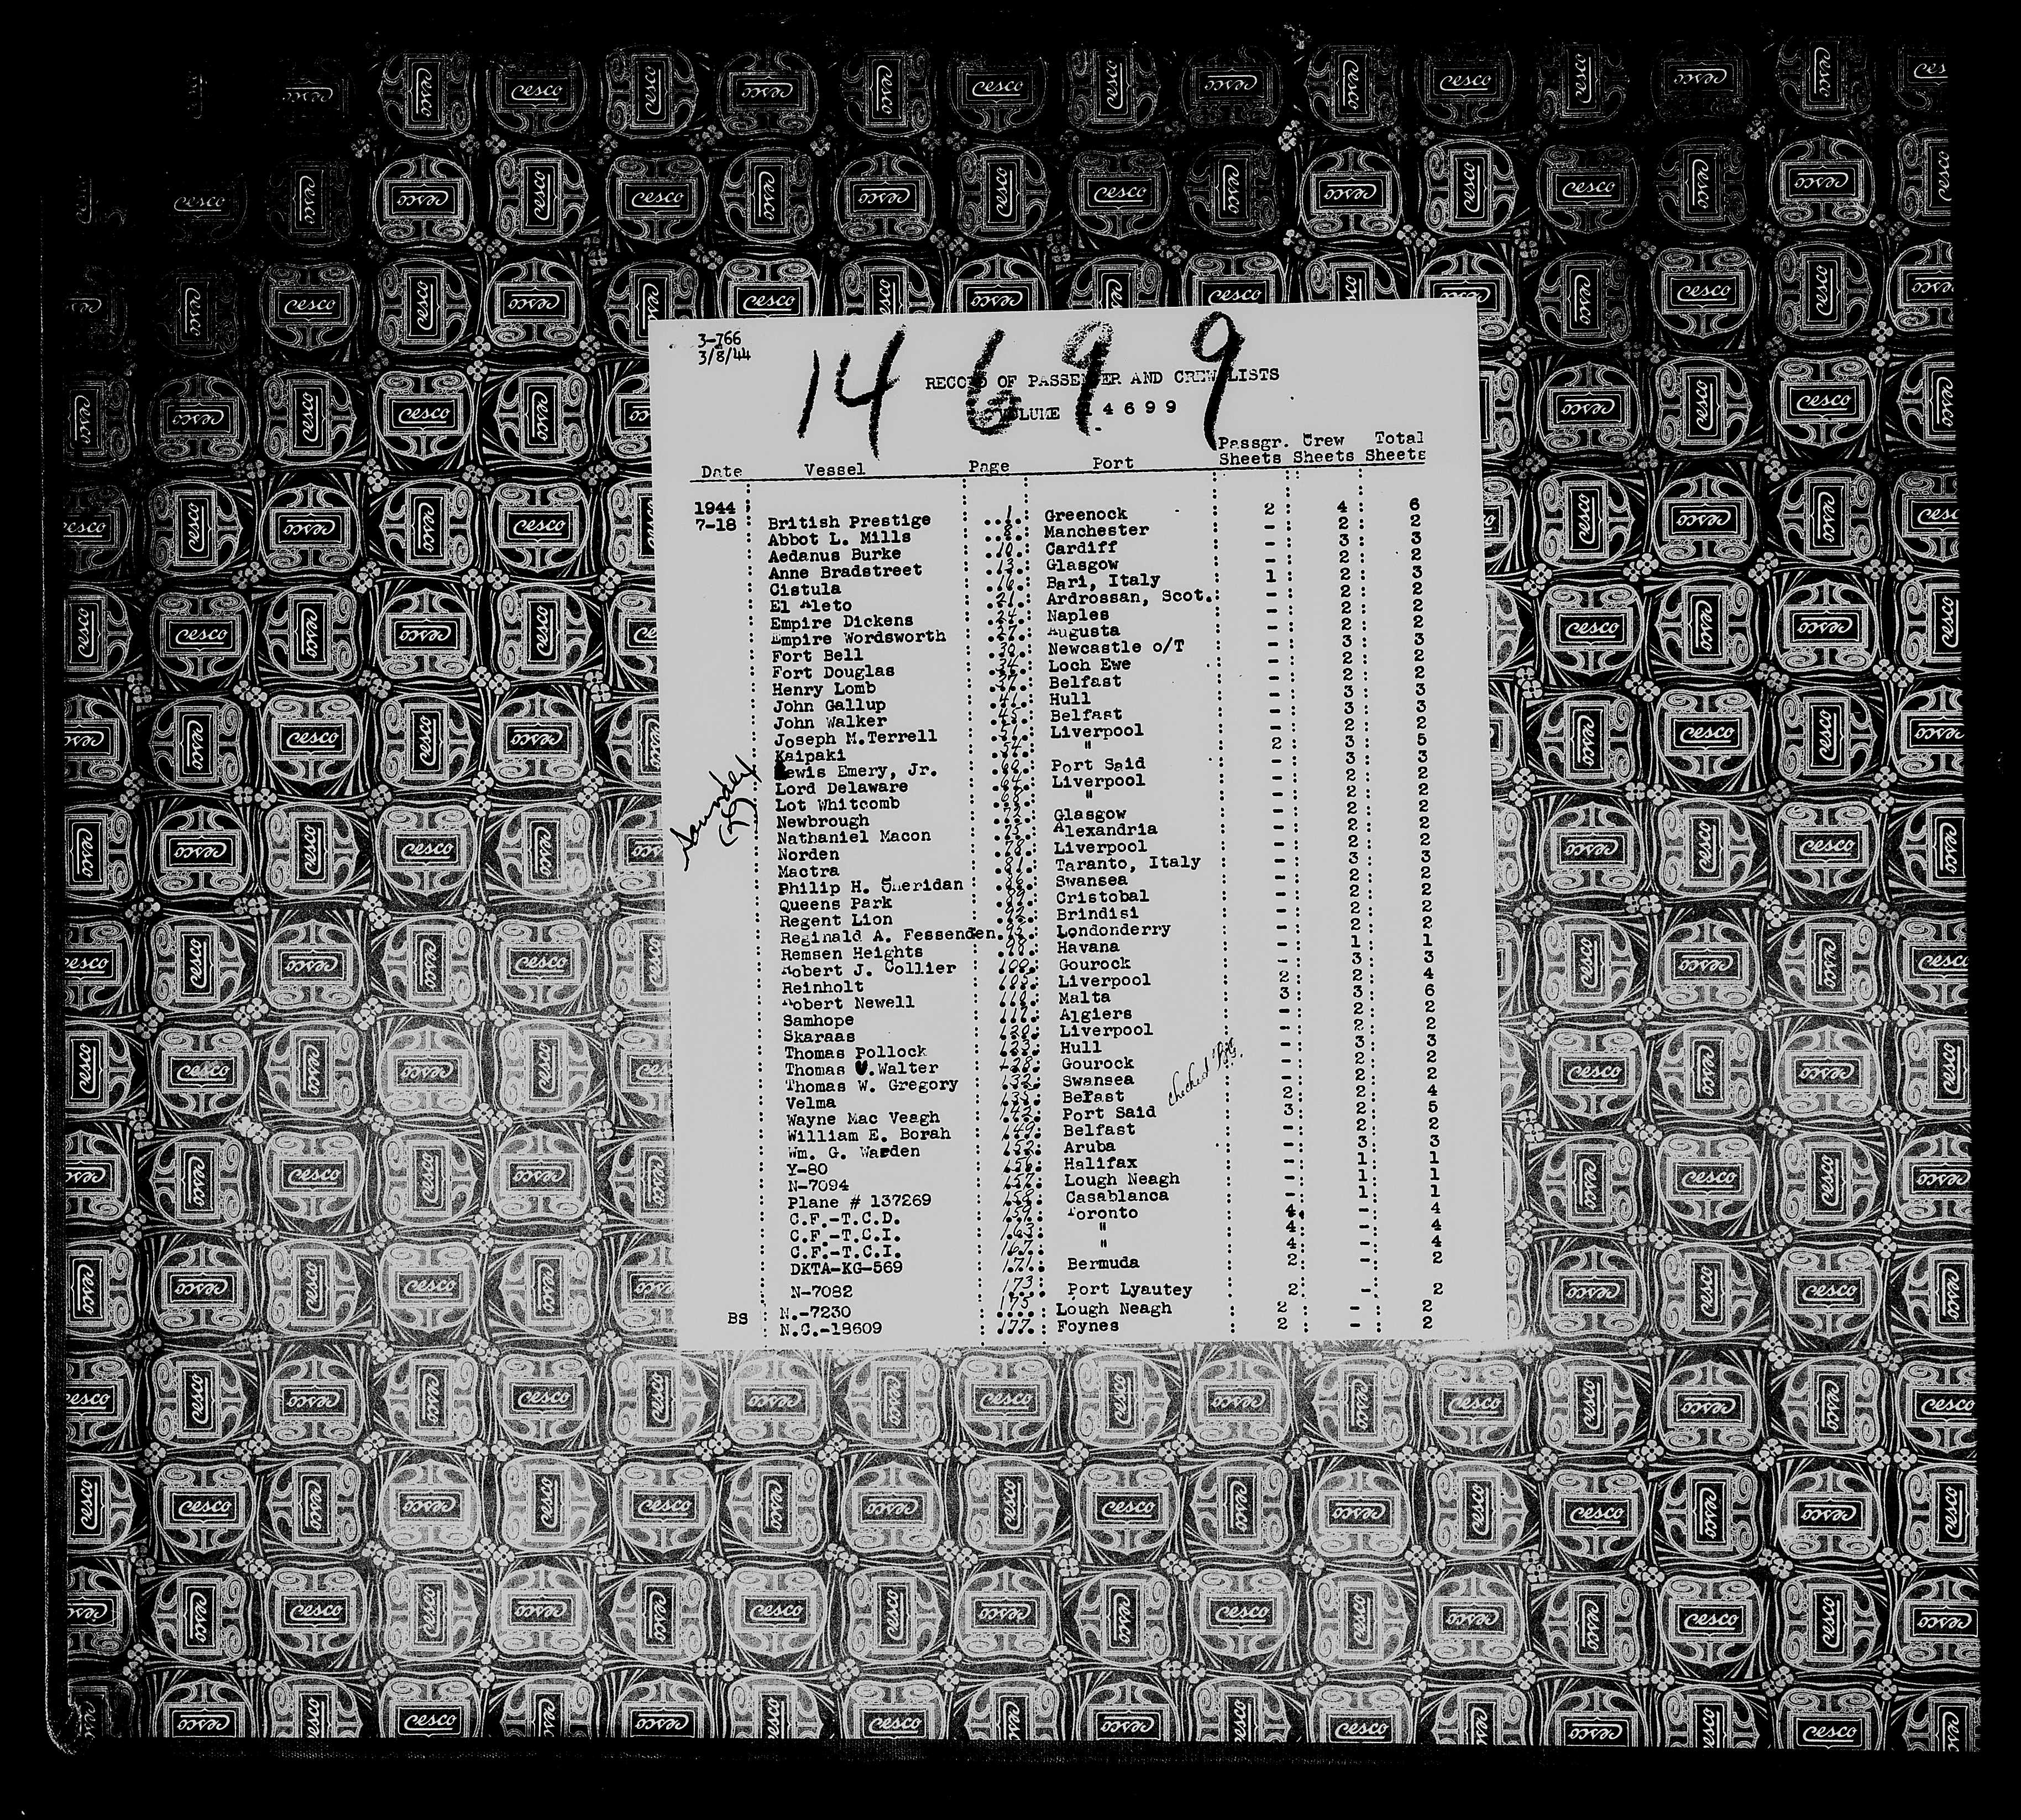 3-766
3/8/44
14699
RECORD OF PASSENGER AND CREW LISTS
VOLUME 14699
Passgr. Crew Total
Date Vessel Page Port Sheets Sheets Sheets
1944
7-18 British Prestige 1 Greenock 2 4 6
Abbot L. Mills 8 Manchester - 2 2
Aedanus Burke 10 Cardiff - 3 3
Anne Bradstreet 13 Glasgow - 2 2
Cistula 16 Bari, Italy 1 2 3
El Aleto 21 Ardrossan, Scot. - 2 2
Empire Dickens 24 Naples - 2 2
Empire Wordsworth 27 Augusta - 2 2
Fort Bell 30 Newcastle o/T - 3 3
Fort Douglas 34 Loch Ewe - 2 2
Henry Lomb 37 Belfast - 2 2
John Gallup 41 Hull - 3 3
John Walker Belfast - 3 3
Joseph M.Terrell 51 Liverpool - 2 2
Kaipaki 54 " 2 3 5
Lewis Emery, Jr. 60 Port Said - 3 3
Lord Delaware 64 Liverpool - 2 2
Lot Whitcomb 68 " - 2 2
Newbrough 72 Glasgow - 2 2
Nathaniel Macon 75 Alexandria - 2 2
Norden 78 Liverpool - 2 2
Mactra 81 Taranto, Italy - 3 3
Philip H. Sheridan 86 Swansea - 2 2
Queens Park 89 Cristobal - 2 2
Regent Lion 92 Brindisi - 2 2
Reginald A. Fessenden 95 Londonderry - 2 2
Remsen Heights 98 Havana - 1 1
Robert J. Collier 100 Gourock - 3 3
Reinholt 105 Liverpool 2 2 4
Robert Newell 110 Malta 3 3 6
Samhope 117 Algiers - 2 2
Skaraas 120 Liverpool - 2 2
Thomas Pollock 123 Hull - 3 3
Thomas U.Walter 128 Gourock - 2 2
Thomas W. Gregory 132 Swansea - 2 2
Velma 135 Befast 2 2 4
Wayne Mac Veagh 142 Port Said 3 2 5
William E. Borah 149 Belfast - 2 2
Wm. G. Warden 152 Aruba - 3 3
Y-80 156 Halifax - 1 1
N-7094 157 Lough Neagh - 1 1
Plane # 137269 158 Casablanca - 1 1
C.F.-T.C.D. 159 Toronto 4 - 4
C.F.-T.C.I. 163 " 4 - 4
C.F.-T.C.I. 167 " 4 - 4
DKTA-KG-569 171 Bermuda 2 - 2
N-7082 173 Port Lyautey 2 - 2
BS N.-7230 175 Lough Neagh 2 - 2
N.C.-18609 177 Foynes 2 - 2
checked
cesco